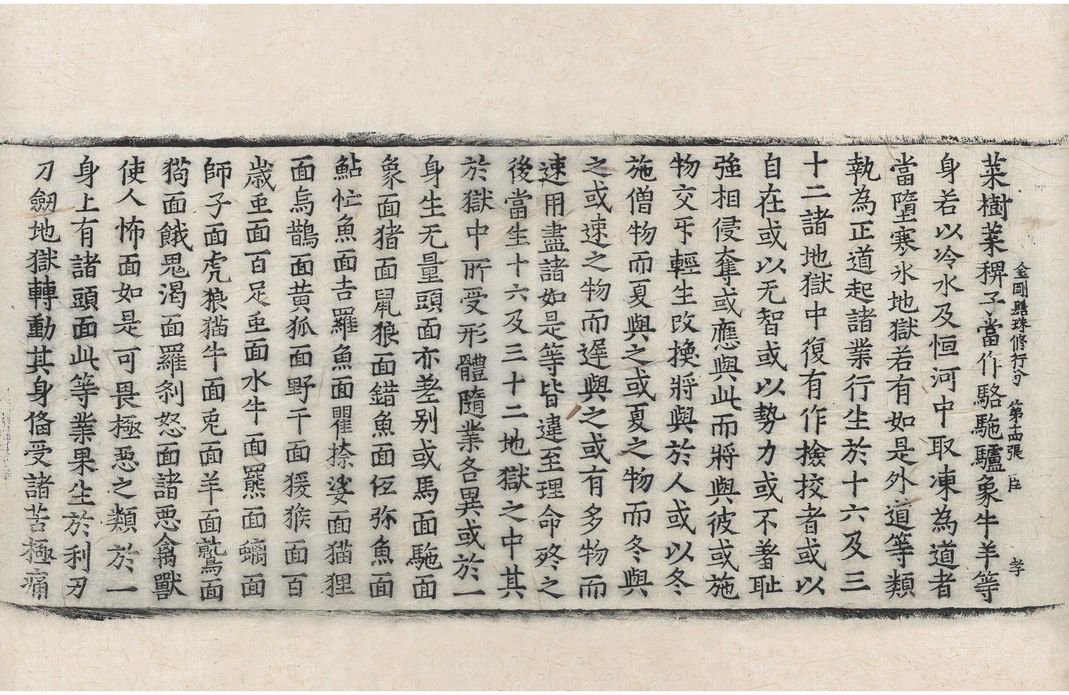 金剛懸珠修行分 第十四張 臣 孝
菜樹菜稗子當作駱駞驢象牛羊等
身若以冷水及恒河中取凍為道者
當墮寒氷地獄若有如是外道等類
執為正道起諸業行生於十六及三
十二諸地獄中復有作撿挍者或以
自在或以无智或以勢力或不着耻
強相侵奪或應與此而將與彼或施
物交㸦輕生改換將與於人或以冬
施僧物而夏與之或夏之物而冬與
之或速之物而遅與之或有多物而
速用盡諸如是等皆違至理命終之
後當生十六及三十二地獄之中其
於獄中所受形體隨業各異或於一
身生无量頭面亦差别或馬面駞面
象面猪面䑕狼面錯魚面伍弥魚面
鮎忙魚面𠮷羅魚面瞿捺娑面猫狸
面烏鵲面黄狐面野干面猨猴面百
歳䖝面百足䖝面水牛面羆面螭面
師子面虎狼猫牛面兎面羊面鷲面
猯面餓鬼渴面羅刹怒面諸惡禽獸
使人怖面如是可畏極惡之類於一
身上有諸頭面此等業果生於利刃
刀劒地獄轉動其身俻受諸苦極痛